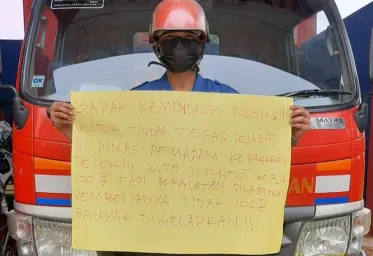 BAPAK KEMENDAGRI TOLONG!!!
UNTUK TINDAK TEGAS PEJABAT
DI DINAS PEMADAM KEBAKARAN
DEPOK!!! KITA DITUNTUT KERJA
100% TAPI PERALATAN DILAPANGAN
PEMBELIANYA TIDAK 100%
BANYAK DIGELAPKAN!!!
OK